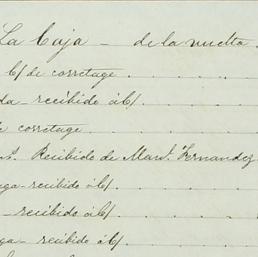 La Caja - de la vuelta
c/ de corretage
da recibido a c/
de corretage
Recibido de Man. Fernandez
ga - recibido a c/
- recibido a c/
ga - recibido a c/